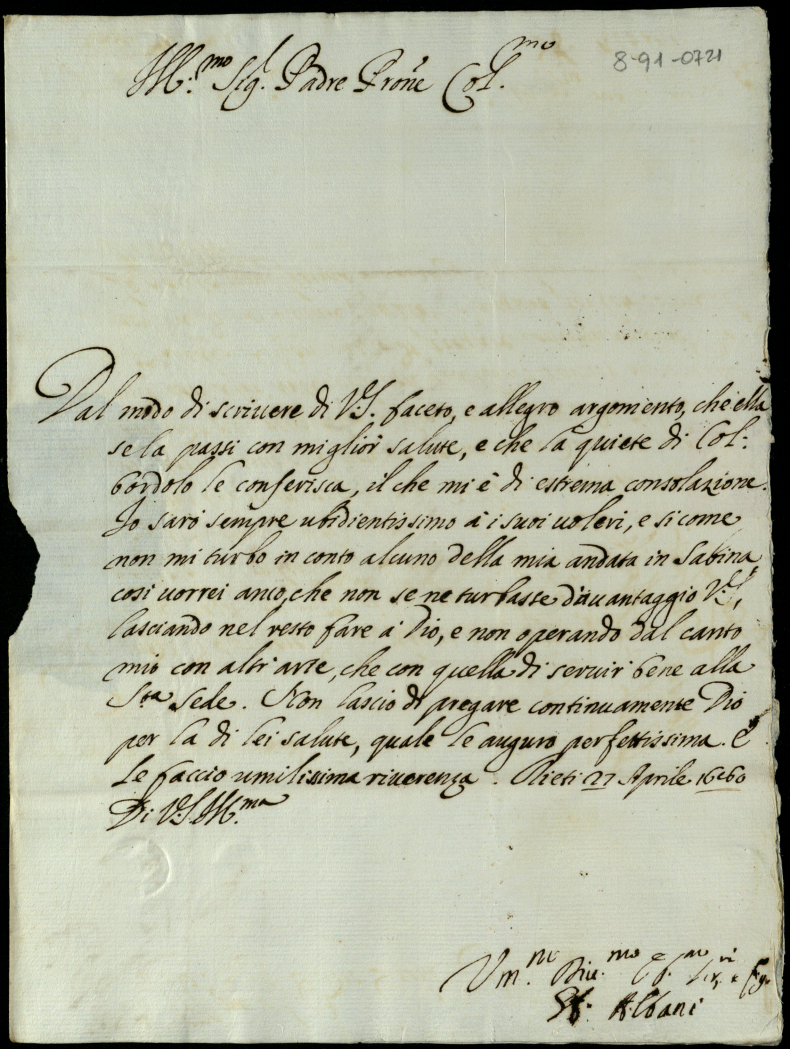 Ill.mo Sig.r Padre Prone Col.mo
8-91-0721
Dal modo di scriuere di V.S. faceto, e allegro argomento, che ella
se la passi con miglior salute, e che la quiete di Col:
bordolo le conferisca, il che mi è di estrema consolazione.
Io sarò sempre ubidientissimo à i suoi uoleri, e si come
non mi turbo in conto alcuno della mia andata in Sabina,
cosi uorrei anco, che non se ne turbasse dauantaggio V.S.,
lasciando nel resto fare à Dio, e non operando dal canto
mio con altr'arte, che con quella di seruir bene alla
S.ta Sede. Non lascio di pregare continuamente Dio
per la di lei salute, quale le auguro perfettissima. E
le faccio umilissima riuerenza. Rieti 27 Aprile 1660
Di V.S. Ill.ma
Um.mo Diu.mo Ob.mo Ser.re e fig.
Albani